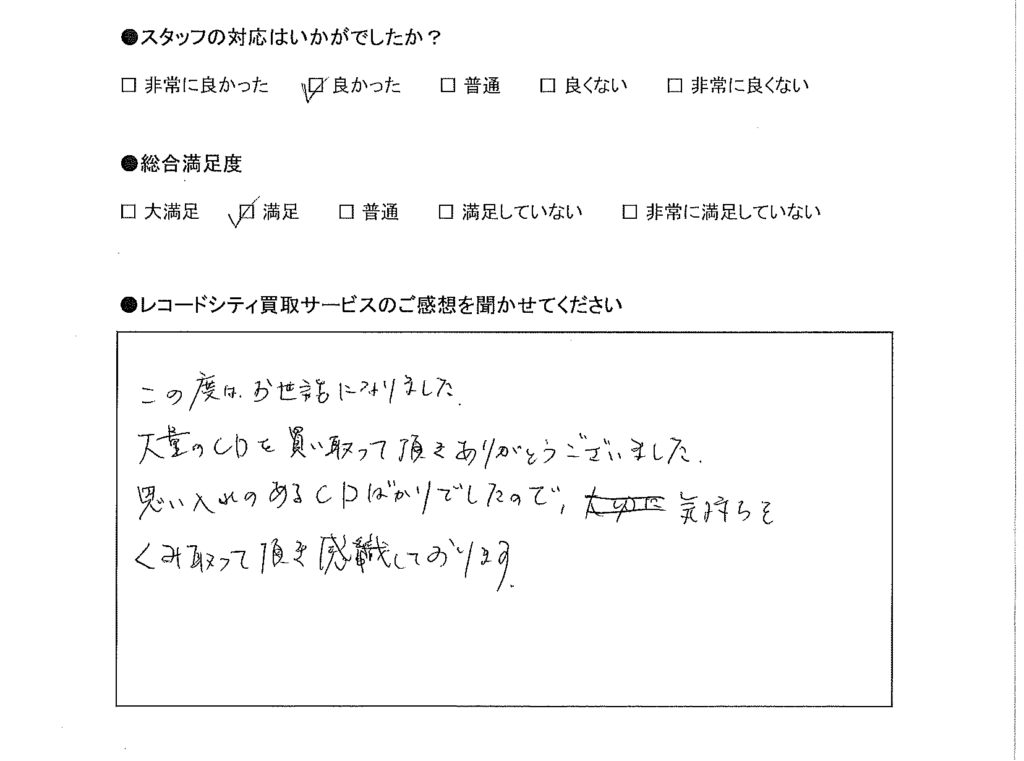 ●スタッフの対応はいかがでしたか？
□ 非常に良かった ☑ 良かった □ 普通 □ 良くない □ 非常に良くない
●総合満足度
□ 大満足 ☑ 満足 □ 普通 □ 満足していない □ 非常に満足していない
●レコードシティ買取サービスのご感想を聞かせてください
この度は、お世話になりました。
大量のCDを買い取って頂きありがとうございました。
思い入れのあるCDばかりでしたので、気持ちを
くみ取って頂き感しております。